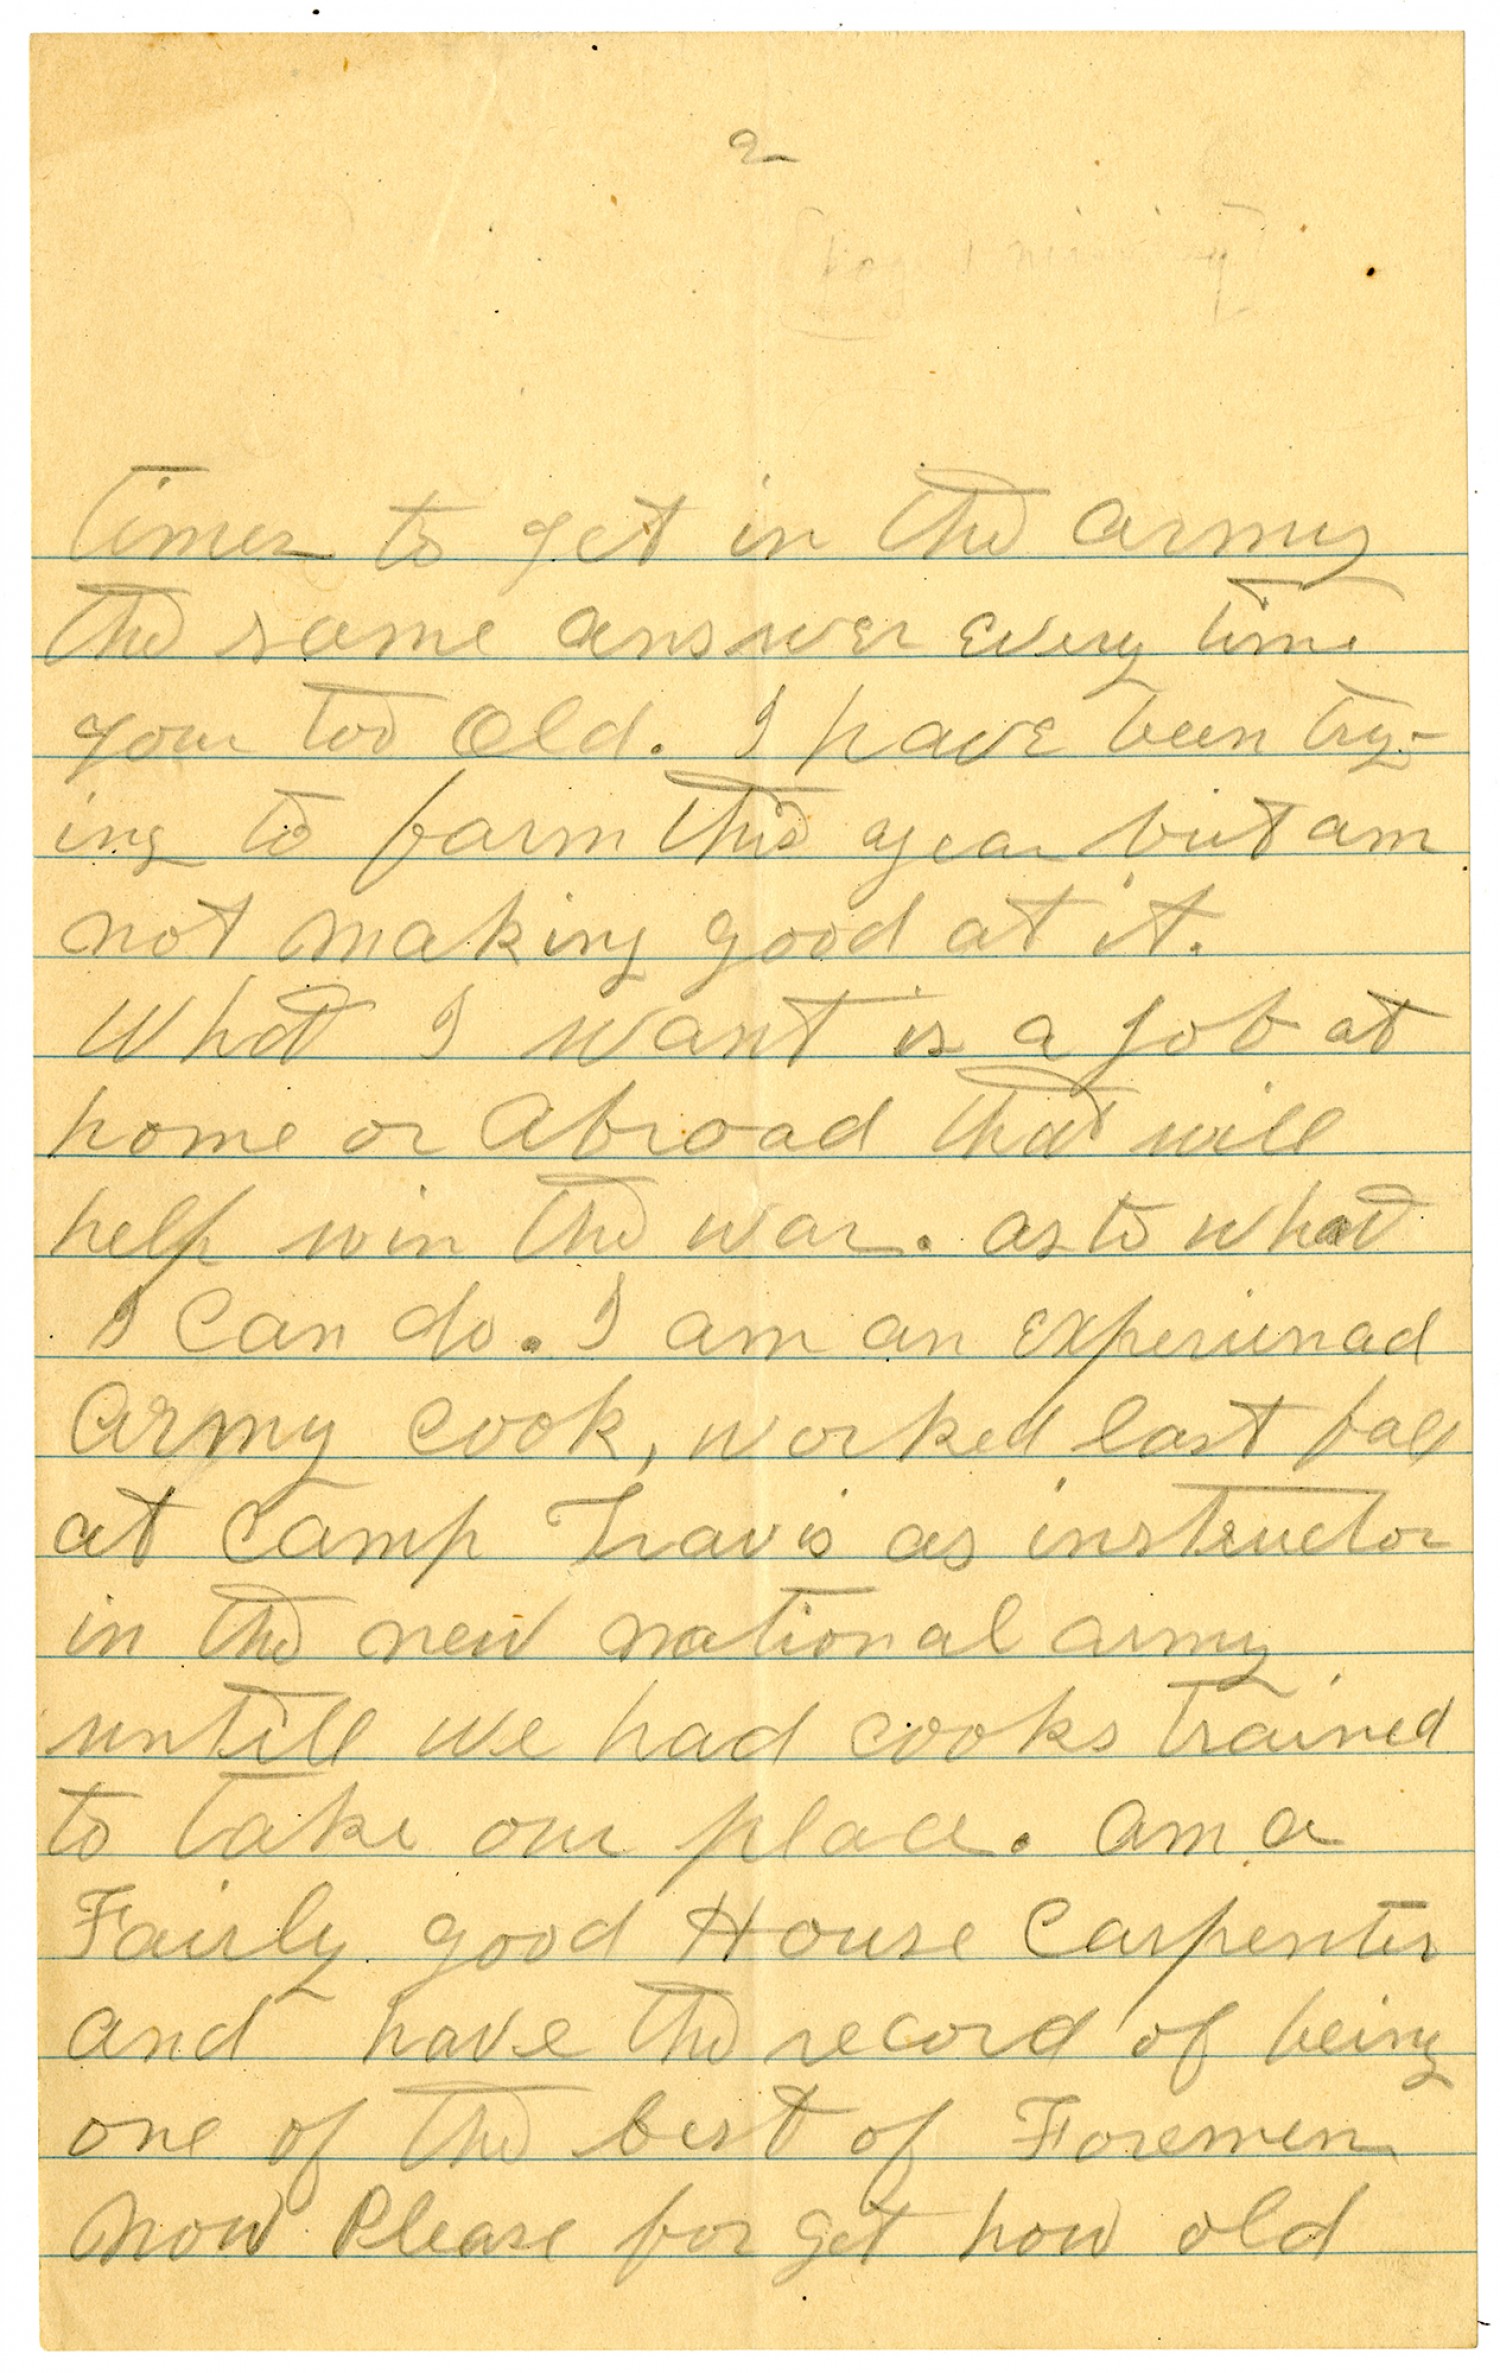 2
[page 1 missing]
times to get in the army
the same answer every time
your too old. I have been try-
ing to farm this year but am
not making good at it.
What I want is a job at
home or abroad that will
help win the war. as to what
I can do. I am an experienad
army cook, worked last fall
at Camp Travis as instructor
in the new national army
untill we had cooks trained
to take our place. am a
Fairly good House Carpenter
and have the record of being
one of the best of Foremen
now Please forget how old